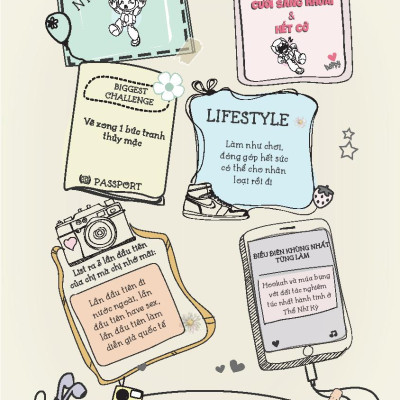 CƯỜI SẢNG KHOÁI
&
HẾT CỠ
BIGGEST
CHALLENGE
Vẽ xong 1 bức tranh
thủy mặc
PASSPORT
LIFESTYLE
Làm như chơi,
đóng góp hết sức
có thể cho nhân
loại rồi đi
List ra 3 lần đầu tiên
của chị mà chị nhớ mãi:
Lần đầu tiên đi
nước ngoài, lần
đầu tiên have sex,
lần đầu tiên làm
diễn giả quốc tế
ĐIỀU ĐIÊN KHÙNG NHẤT
TỪNG LÀM
Hookah và múa bụng
với đối tác nghiêm
túc nhất hành tinh ở
Thổ Nhĩ Kỳ